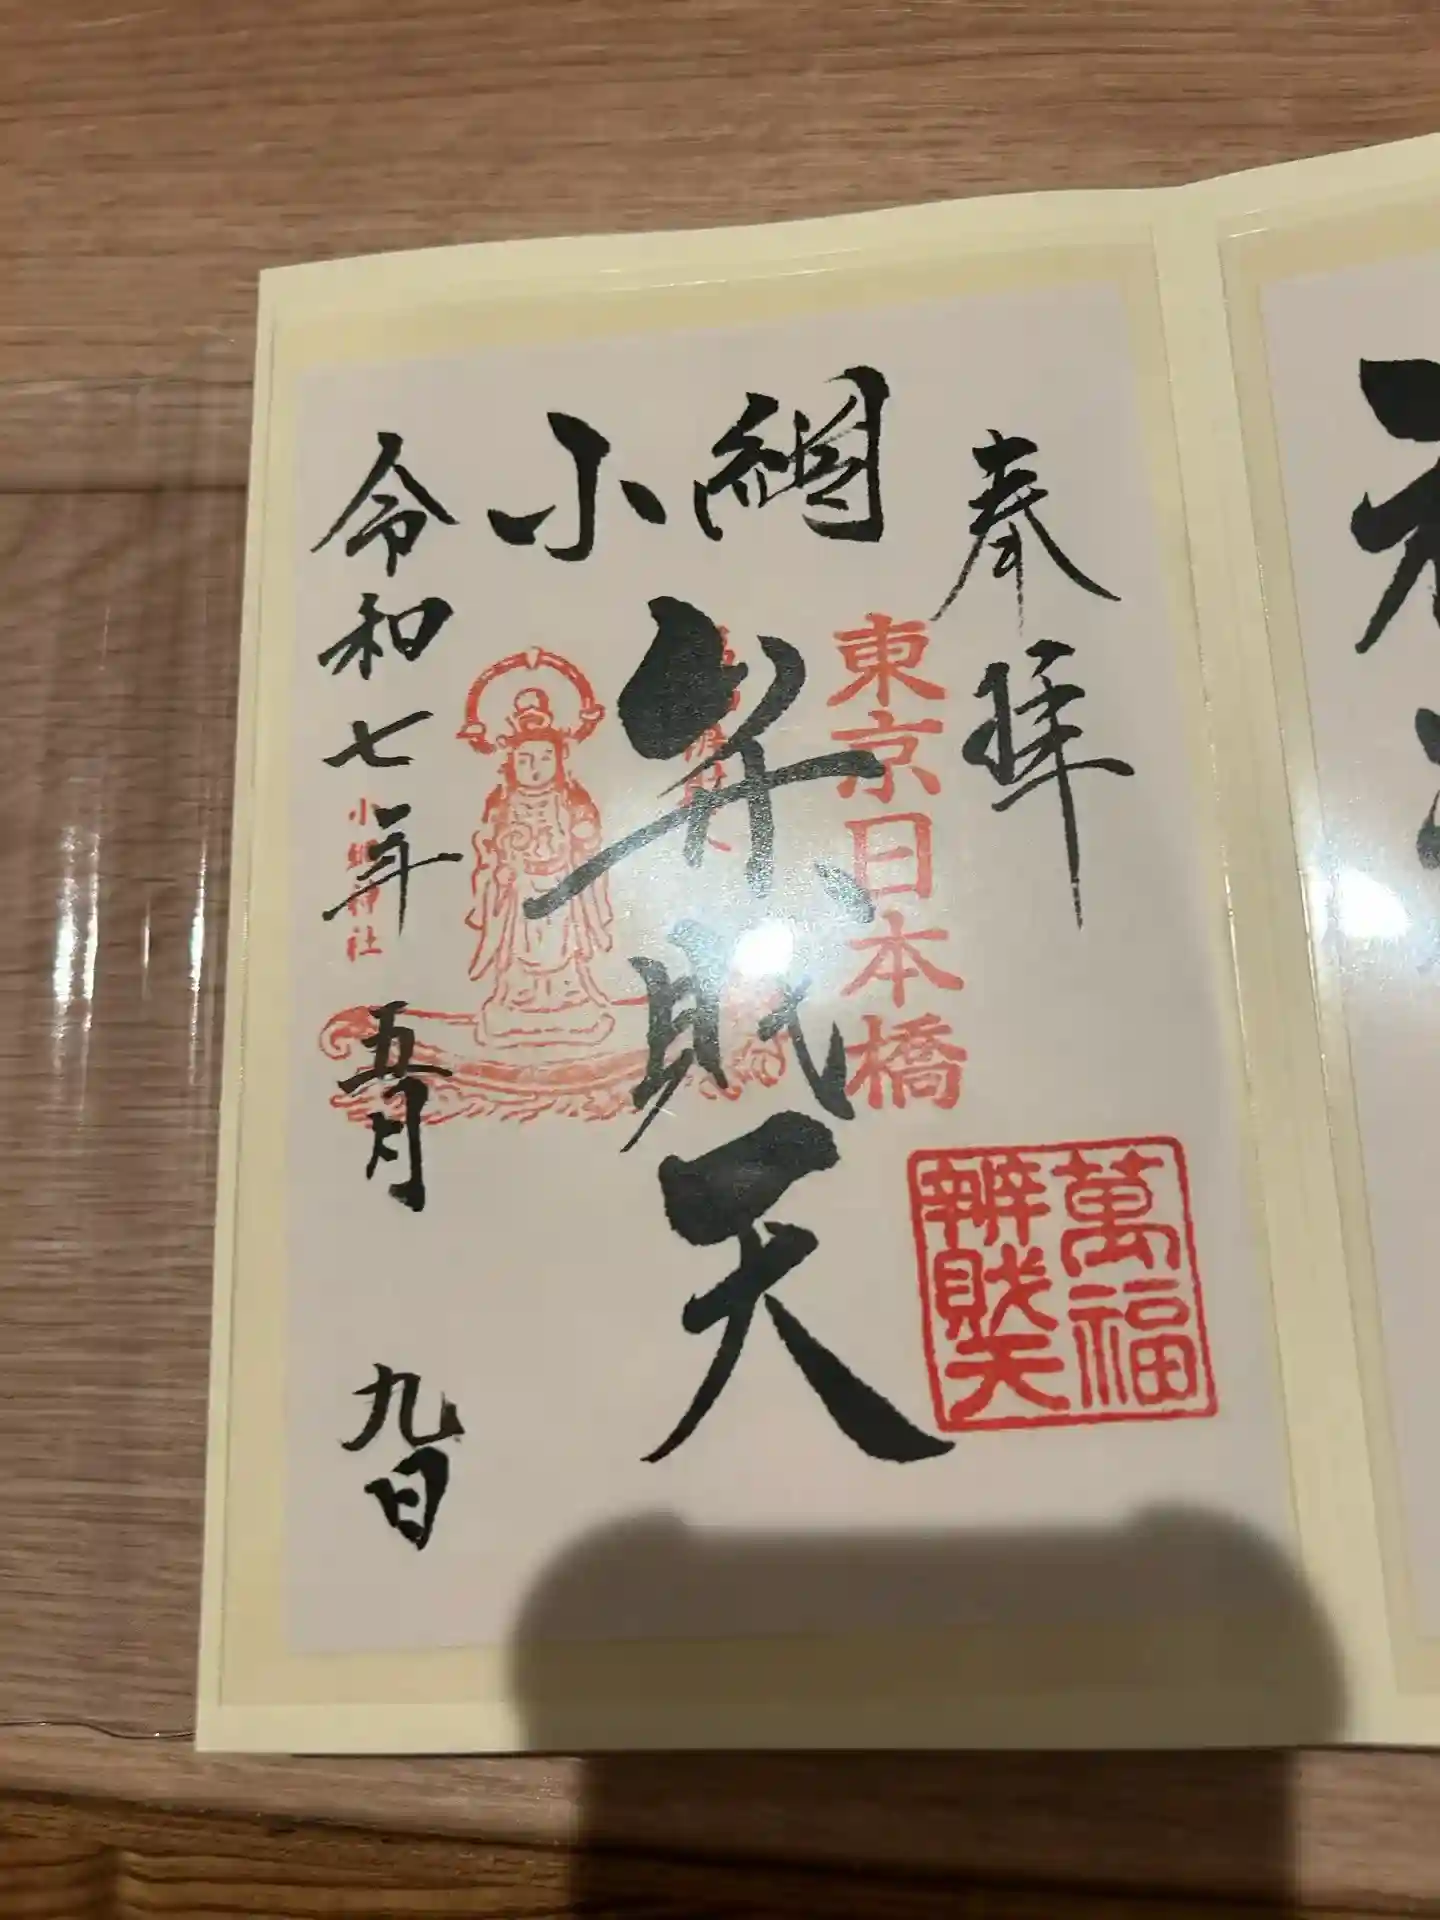 奉拝
東京日本橋
萬福
辨財天
小網
弁財天
小網神社
令和七年五月九日